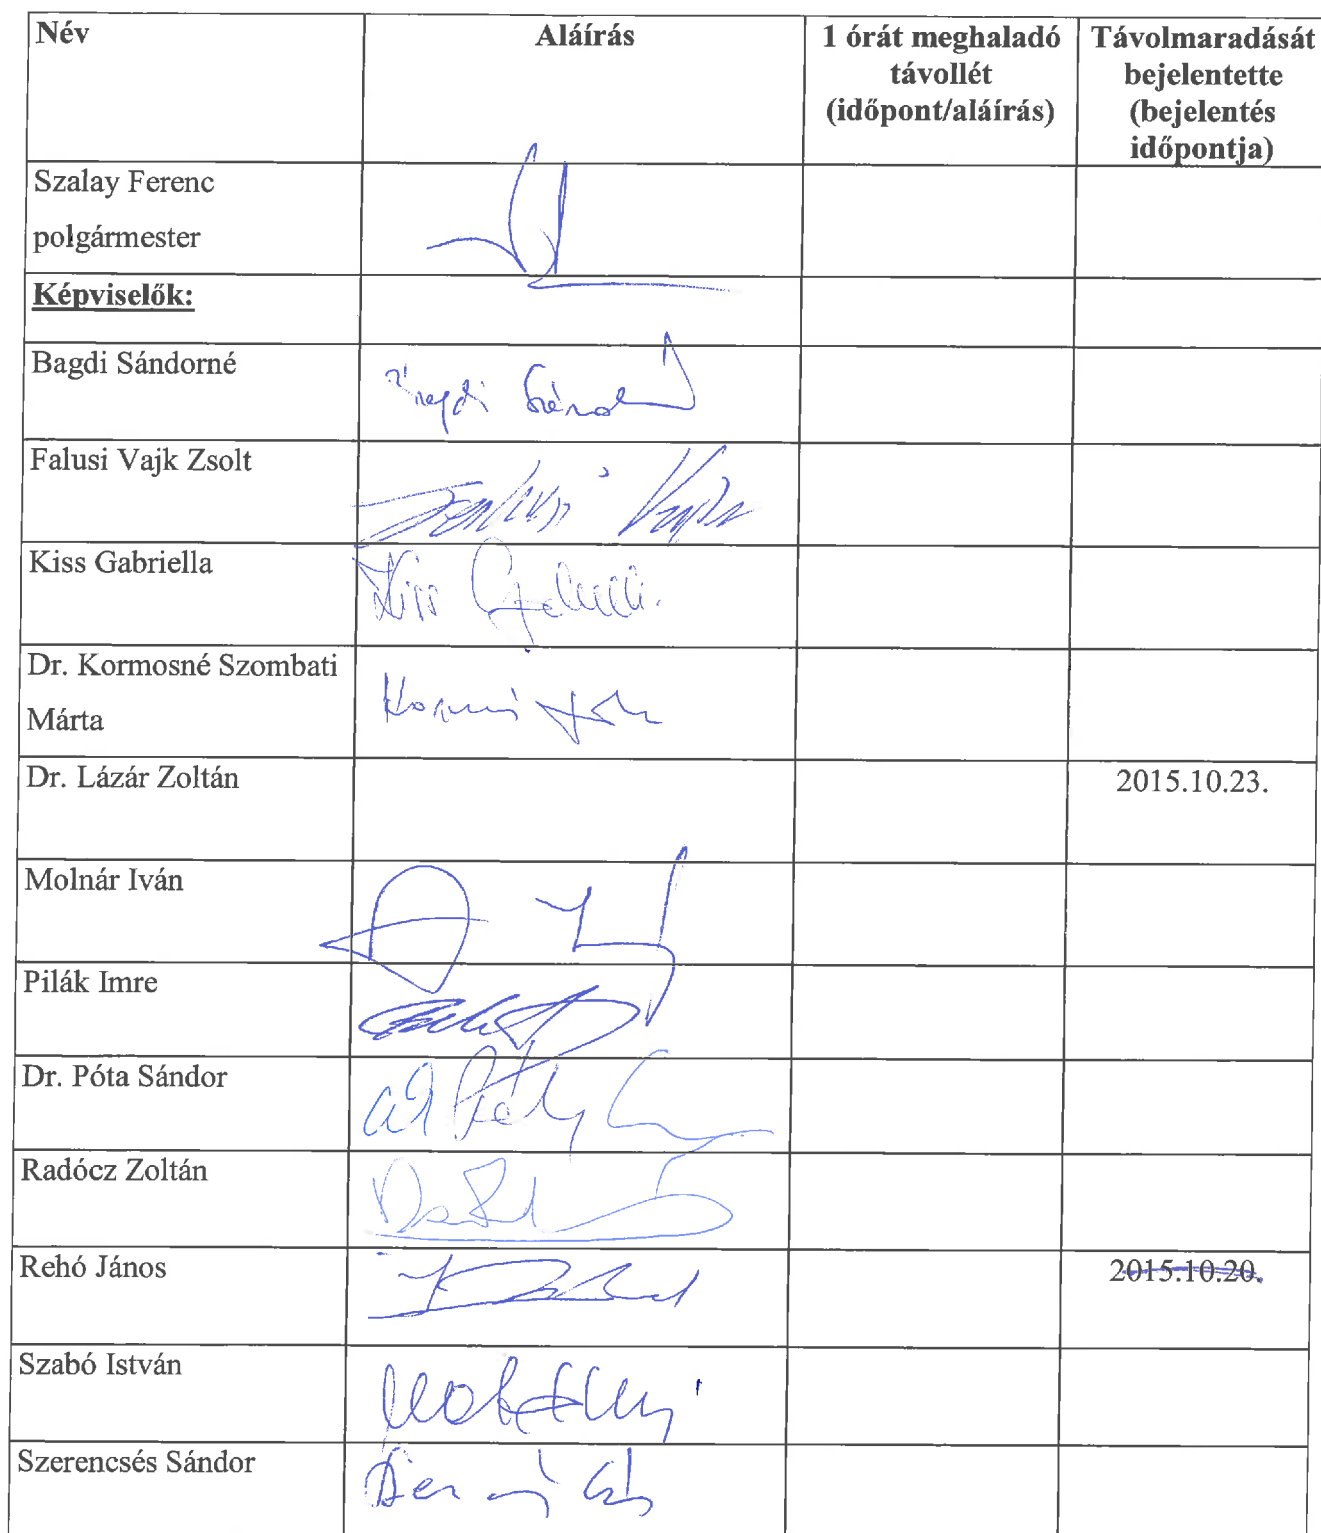 Név
Aláírás
1 órát meghaladó
távollét
(időpont/aláírás)
Távolmaradását
bejelentette
(bejelentés
időpontja)
Szalay Ferenc
polgármester
Képviselők:
Bagdi Sándorné
Falusi Vajk Zsolt
Kiss Gabriella
Kiss
Dr. Kormosné Szombati
Márta
Dr. Lázár Zoltán
2015.10.23.
Molnár Iván
Pilák Imre
Dr. Póta Sándor
Radócz Zoltán
Rehó János
2015.10.20.
Szabó István
Szerencsés Sándor